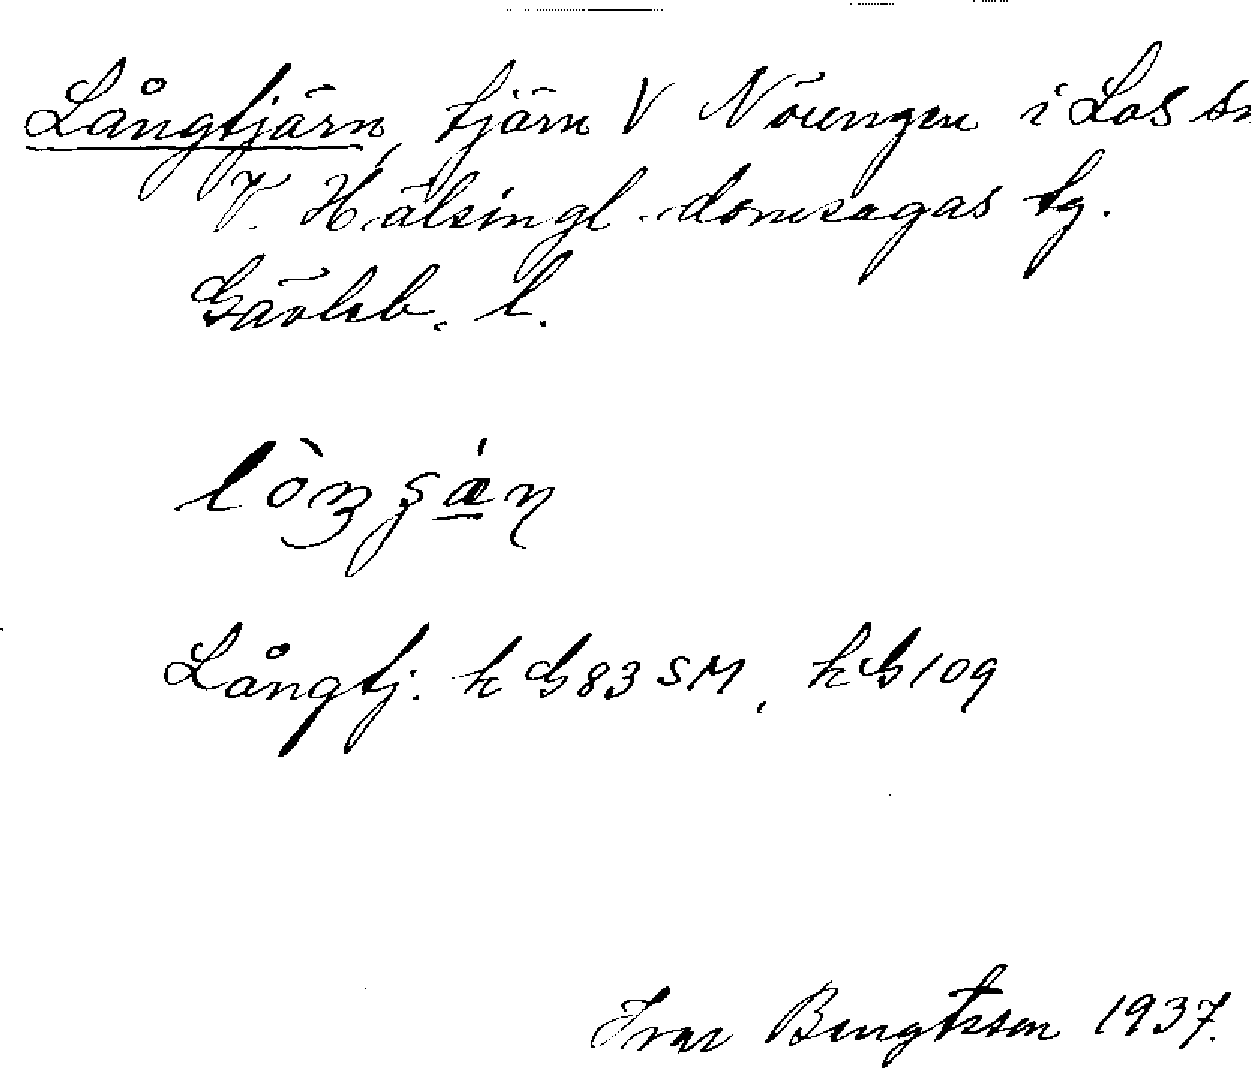 Långtjärn, tjärn V Nöungen i Los sn
V. Hälsingl. domsagas tg.
Gävleb. l.
Långtj. k G83 SM, k G109
Ivar Bengtsson 1937.